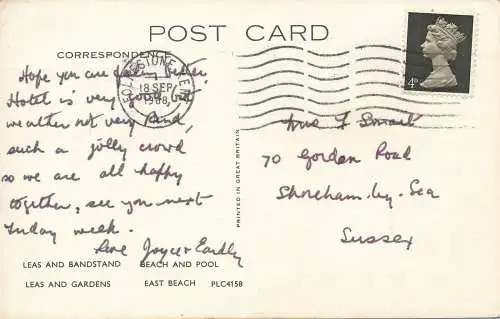 POST CARD
CORRESPONDENCE
FOLKESTONE KENT
18 SEP
1968
4D
Hope you are feeling better,
Hotel is very good,
weather not very kind,
such a jolly crowd
so we are all happy
together, see you next
Friday week.
Love Joyce & Eardly
Mrs F Smart
70 Gordon Road
Shoreham-by-Sea
Sussex
PRINTED IN GREAT BRITAIN
LEAS AND BANDSTAND BEACH AND POOL
LEAS AND GARDENS EAST BEACH PLC4158